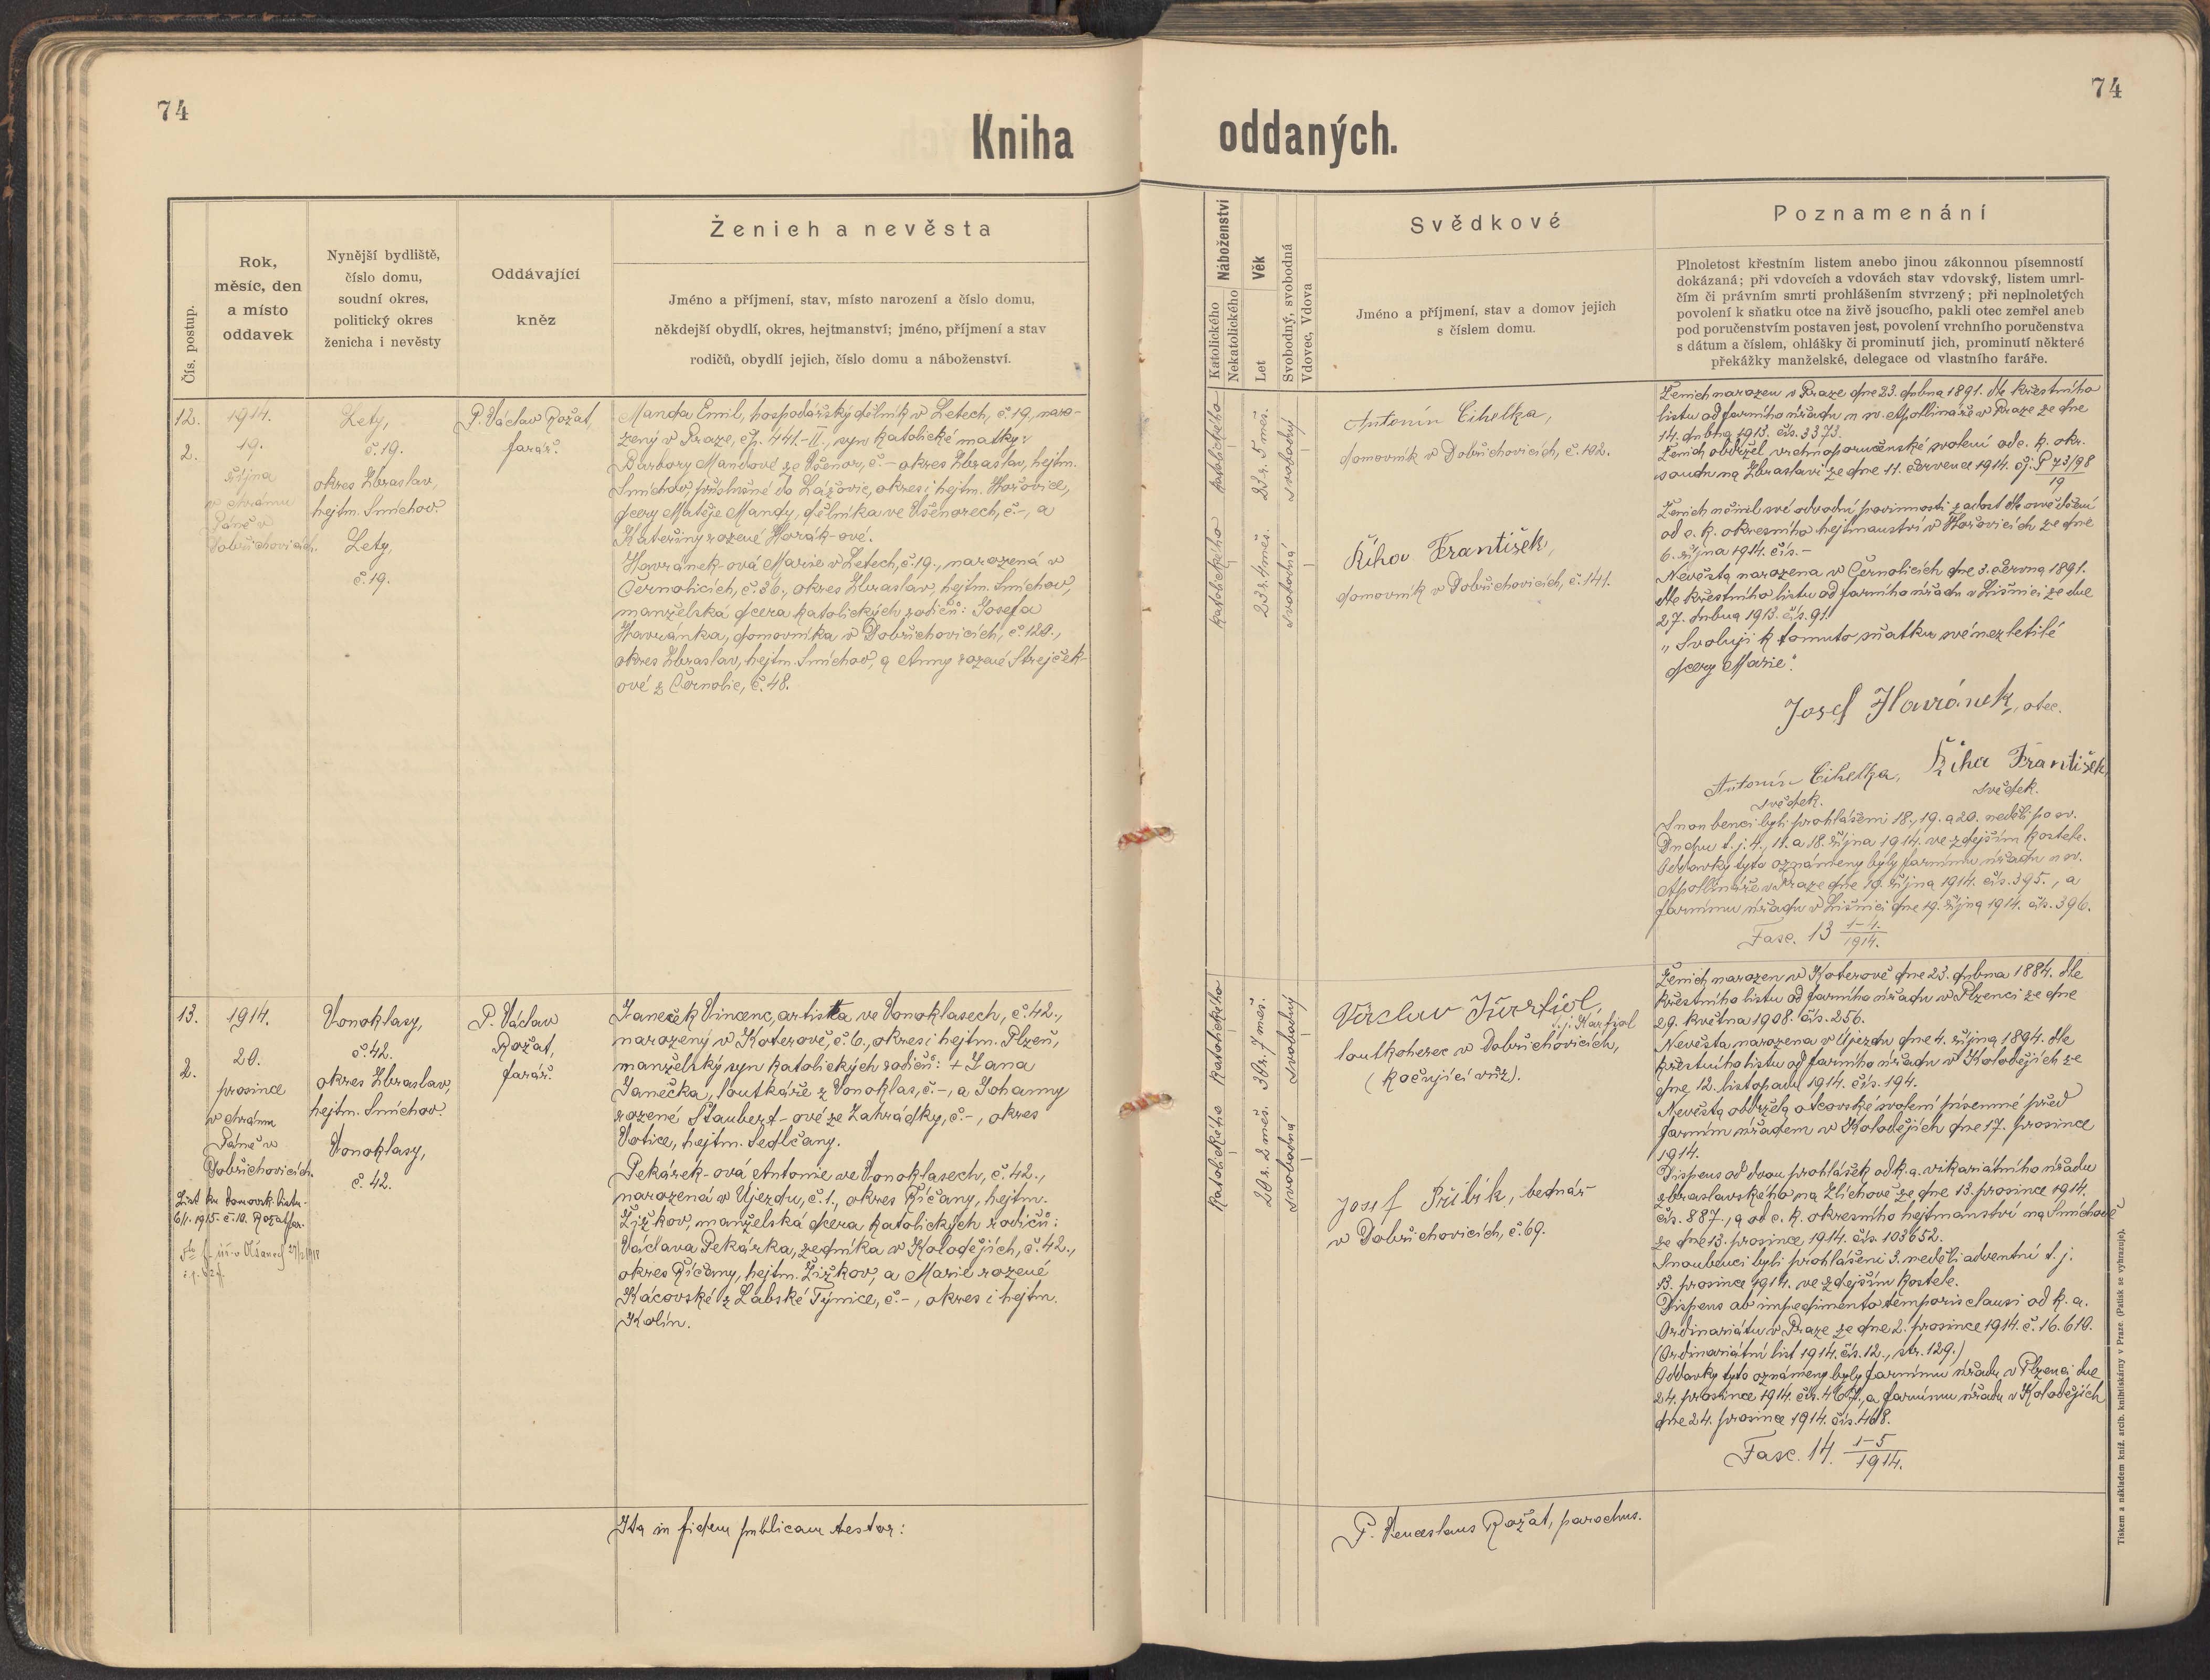 74
74
Kniha
oddaných.
Čís. postup.
Rok,
měsíc, den
a místo
oddavek
Nynější bydliště,
číslo domu,
soudní okres,
politický okres
ženicha i nevěsty
Oddávající
kněz
Ženich a nevěsta
Jméno a příjmení, stav, místo narození a číslo domu,
někdejší obydlí, okres, hejtmanství; jméno, příjmení a stav
rodičů, obydlí jejich, číslo domu a náboženství.
12.
2.
1914.
19.
října
v chrámu
Páně v
Dobřichovicích.
Lety,
č. 19.
okres Zbraslav,
hejtm. Smíchov.
Lety,
č. 19.
P. Václav Rožat,
farář.
Manda Emil, hospodářský dělník v Letech, č. 19, naro-
zený v Praze, čp. 441.-II., syn katolické matky:
Barbory Mandové ze Všenor, č. -, okres Zbraslav, hejtm.
Smíchov, příslušné do Lážovic, okres i hejtm. Hořovice,
dcery Matěje Mandy, dělníka ve Všenorech, č. -, a
Kateřiny rozené Horák-ové.
Havránek-ová Marie v Letech, č. 19., narozená v
Černolicích, č. 36., okres Zbraslav, hejtm. Smíchov,
manželská dcera katolických rodičů: Josefa
Havránka, domovníka v Dobřichovicích, č. 120.,
okres Zbraslav, hejtm. Smíchov, a Anny rozené Strejček-
ové z Černolic, č. 48.
13.
2.
1914.
20.
prosince
v chrámu
Páně v
Dobřichovicích.
List ku domovsk. listu.
6/1. 1915. č. 10. Rožat far.
Vonoklasy,
č. 42.
okres Zbraslav,
hejtm. Smíchov.
Vonoklasy,
č. 42.
P. Václav
Rožat,
farář.
Janeček Vincenc, artista ve Vonoklasech, č. 42.,
narozený v Koterově, č. 6., okres i hejtm. Plzeň,
manželský syn katolických rodičů: + Jana
Janečka, loutkáře z Vonoklas, č. -, a Johanny
rozené Staubert-ové ze Zahrádky, č. -, okres
Votice, hejtm. Sedlčany.
Pekárek-ová Antonie ve Vonoklasech, č. 42.,
narozená v Újezdu, č. 1., okres Říčany, hejtm.
Žižkov, manželská dcera katolických rodičů:
Václava Pekárka, zedníka v Kolodějích, č. 42.,
okres Říčany, hejtm. Žižkov, a Marie rozené
Kácovské z Labské Týnice, č. -, okres i hejtm.
Kolín.
Ita in fidem publicam testor:
Náboženství
Katolického
Nekatolického
Věk
Let
Svobodný, svobodná
Vdovec, Vdova
Svědkové
Jméno a příjmení, stav a domov jejich
s číslem domu.
Poznamenání
Plnoletost křestním listem anebo jinou zákonnou písemností
dokázaná; při vdovcích a vdovách stav vdovský, listem umrl-
čím či právním smrti prohlášením stvrzený; při neplnoletých
povolení k sňatku otce na živě jsoucího, pakli otec zemřel aneb
pod poručenstvím postaven jest, povolení vrchního poručenstva
s dátum a číslem, ohlášky či prominutí jich, prominutí některé
překážky manželské, delegace od vlastního faráře.
katolického
katolického
23 r. 5 měs.
23 r. 4 měs.
svobodný
svobodná
Antonín Cihelka,
domovník v Dobřichovicích, č. 192.
Říha František,
domovník v Dobřichovicích, č. 141.
Ženich narozen v Praze dne 23. dubna 1891. dle křestního
listu od farního úřadu u sv. Apollináře v Praze ze dne
14. dubna 1913. čís. 3373.
Ženich obdržel vrchnoporučenské svolení od c. k. okr.
soudu na Zbraslavi ze dne 11. července 1914. čj. P 73/98
19
Ženich učinil své odvodní povinnosti zadost dle osvědčení
od c. k. okresního hejtmanství v Hořovicích ze dne
6. října 1914. čís. -
Nevěsta narozena v Černolicích dne 3. června 1891.
dle křestního listu od farního úřadu v Líšnici ze dne
27. dubna 1913. čís. 91.
„Svoluji k tomuto sňatku své nezletilé
dcery Marie."
Josef Havránek, otec.
Antonín Cihelka,
svědek.
Říha František,
svědek.
Snoubenci byli prohlášeni 18., 19. a 20. neděli po sv.
Duchu t. j. 4., 11. a 18. října 1914. ve zdejším kostele.
Oddavky tyto oznámeny byly farnímu úřadu u sv.
Apollináře v Praze dne 19. října 1914. čís. 395., a
farnímu úřadu v Líšnici dne 19. října 1914. čís. 396.
Fasc. 13 1-4.
1914.
katolického
katolického
30 r. 7 měs.
20 r. 2 měs.
svobodný
svobodná
Václav
t. j. Karfiol
loutkoherec v Dobřichovicích,
(kočující vůz).
Josef Přibík, bednář
v Dobřichovicích, č. 69.
Ženich narozen v Koterově dne 23. dubna 1884. dle
křestního listu od farního úřadu v Plzenci ze dne
29. května 1908. čís. 256.
Nevěsta narozena v Újezdu dne 4. října 1894. dle
křestního listu od farního úřadu v Kolodějích ze
dne 12. listopadu 1914. čís. 194.
Nevěsta obdržela otcovské svolení písemné před
farním úřadem v Kolodějích dne 17. prosince
1914.
Dispens od dvou prohlášek od k. a. vikariátního úřadu
zbraslavského na Zlíchově ze dne 13. prosince 1914.
čís. 887., a od c. k. okresního hejtmanství na Smíchově
ze dne 13. prosince 1914. čís. 103652.
Snoubenci byli prohlášeni 3. neděli adventní t. j.
13. prosince 1914. ve zdejším kostele.
Dispens ab impedimento temporis clausi od k. a.
Ordinariátu v Praze ze dne 2. prosince 1914. č. 16.610.
(Ordinariátní list 1914. čís. 12., str. 129.)
Oddavky tyto oznámeny byly farnímu úřadu v Plzenci dne
24. prosince 1914. čís. 467., a farnímu úřadu v Kolodějích
dne 24. prosince 1914. čís. 468.
Fasc. 14. 1-5
1914.
P. Venceslaus Rožat, parochus.
Tiskem a nákladem kníž. arcib. knihtiskárny v Praze. (Patisk se vyhrazuje).